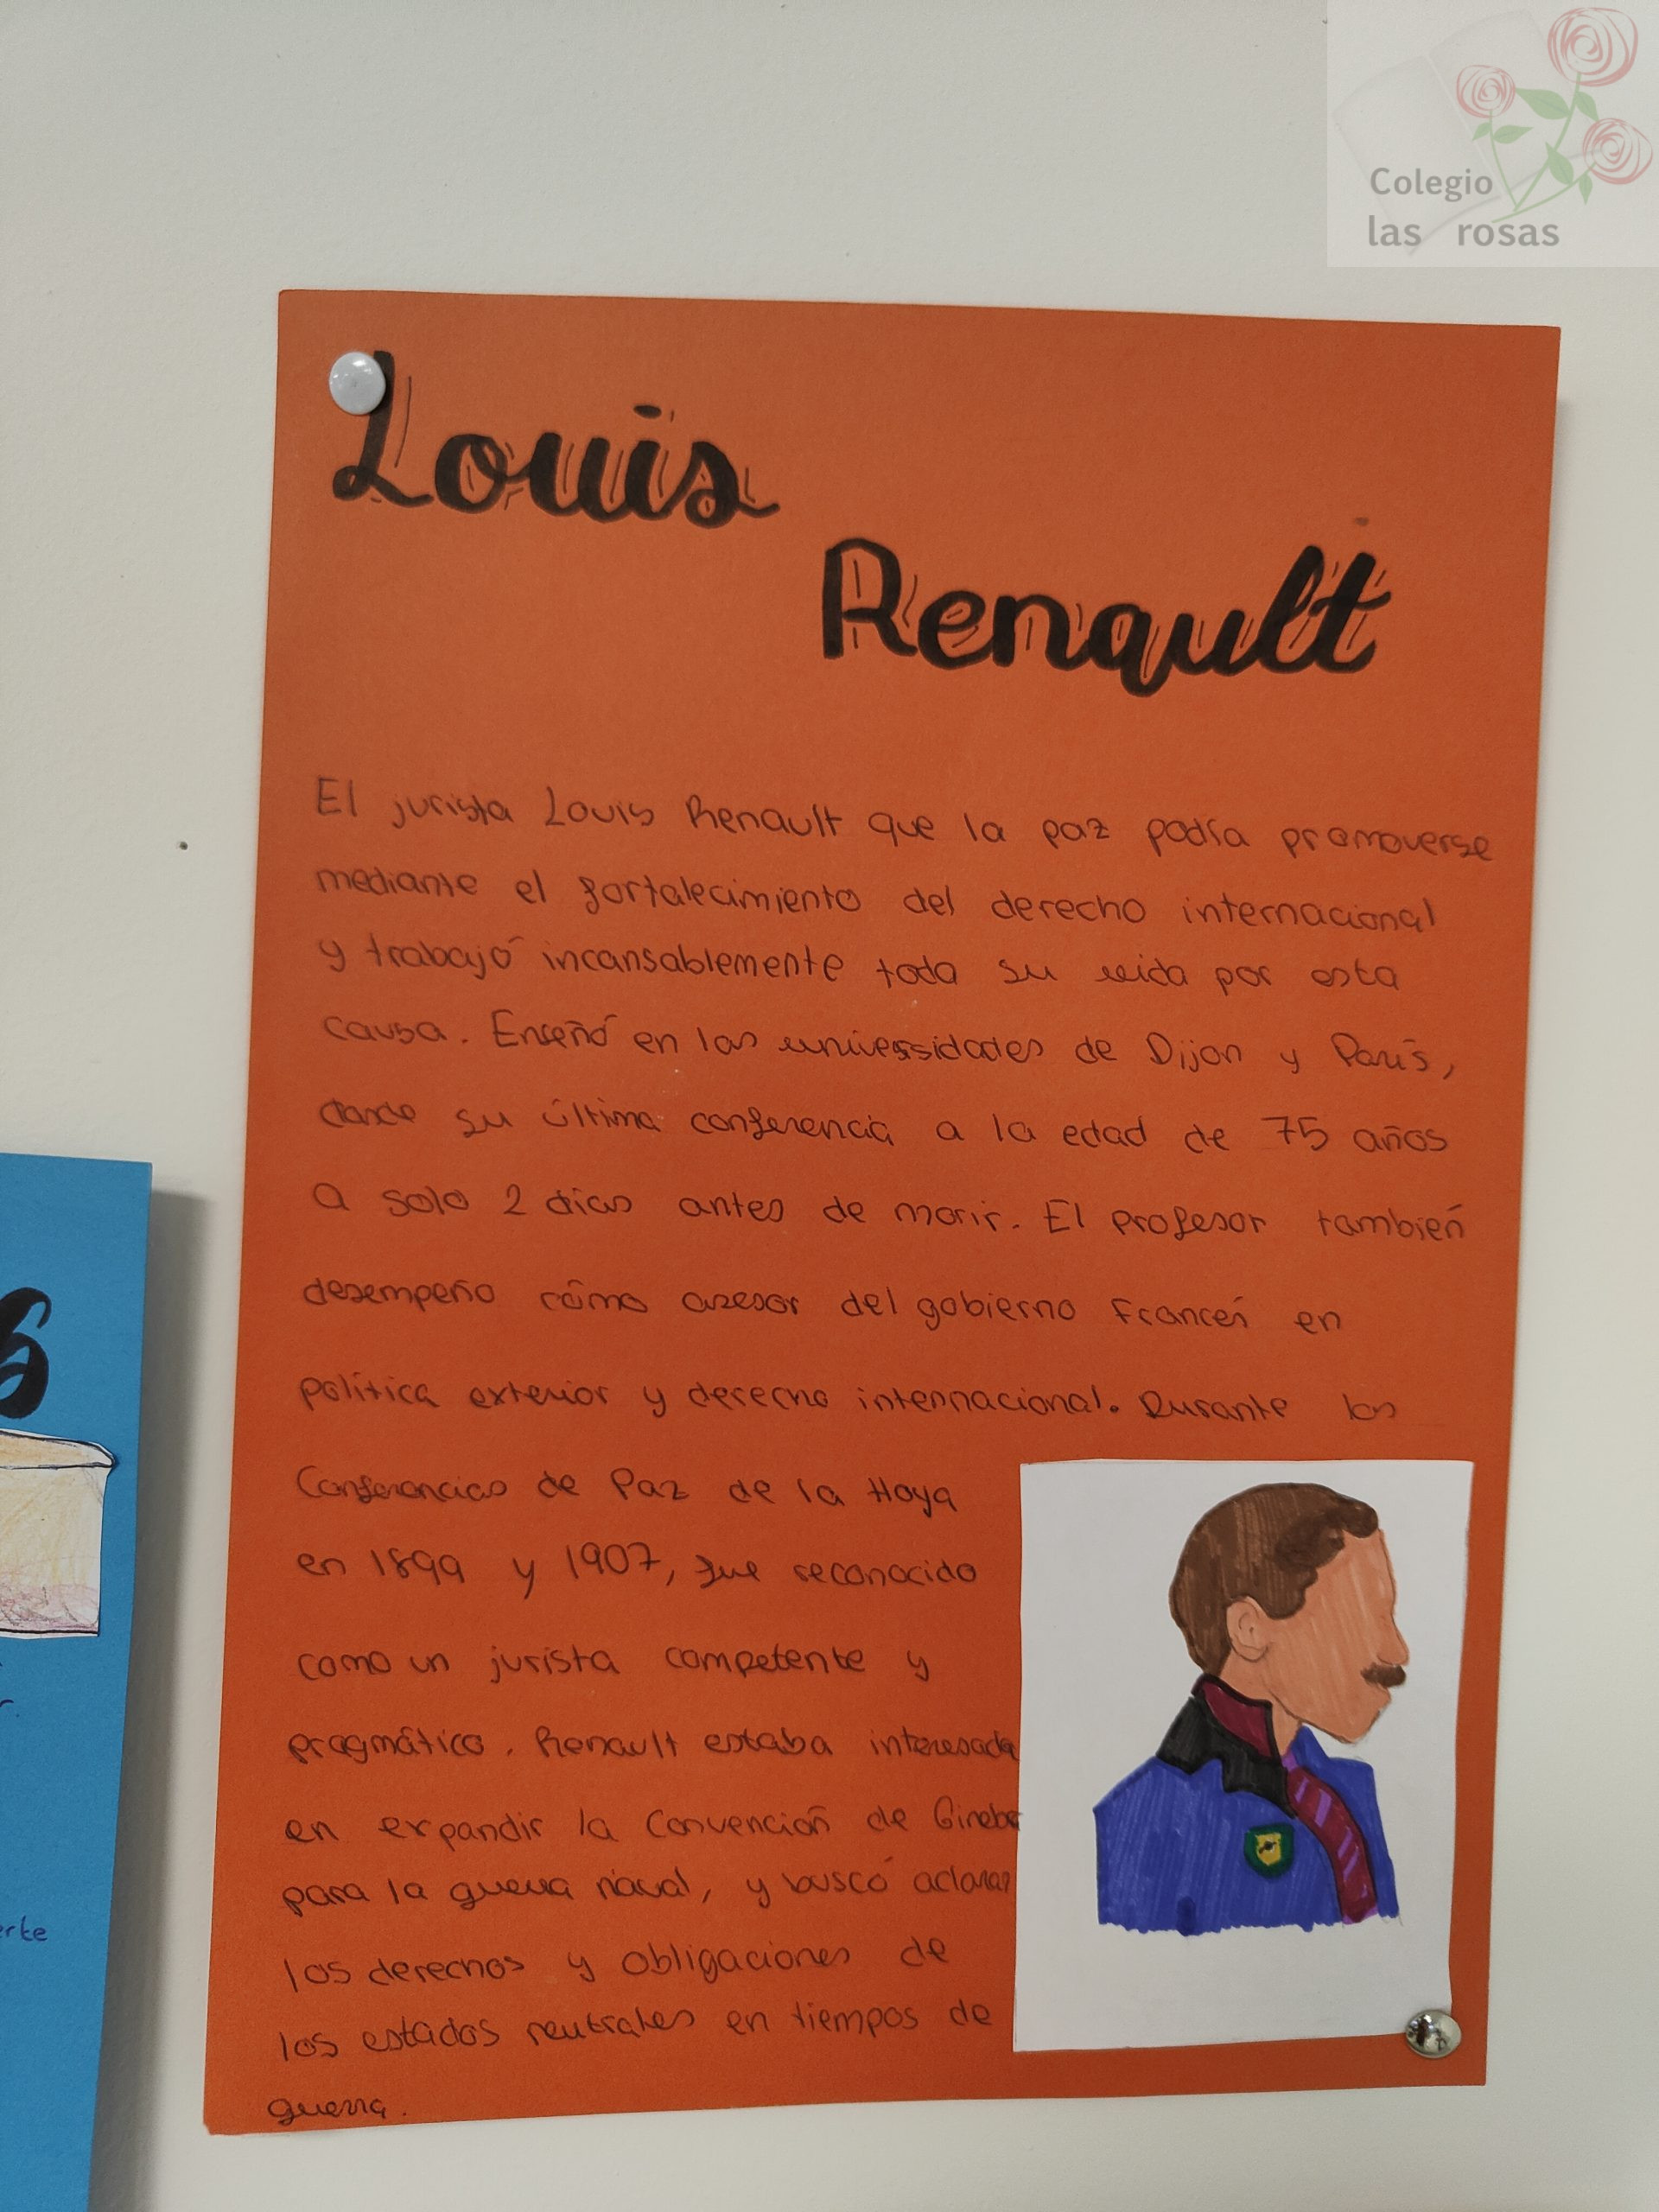 Colegio
las rosas
Louis
Renault
El jurista Louis Renault que la paz podía promoverse
mediante el fortalecimiento del derecho internacional
y trabajó incansablemente toda su vida por esta
causa. Enseñó en las universidades de Dijon y París,
donde su última conferencia a la edad de 75 años
a solo 2 días antes de morir. El profesor también
desempeño cómo asesor del gobierno Francés en
política exterior y derecho internacional. Durante las
Conferencias de Paz de la Haya
en 1899 y 1907, fue reconocido
como un jurista competente y
pragmático. Renault estaba interesada
en expandir la Convención de Ginebr
para la guerra naval, y buscó aclarar
los derechos y obligaciones de
los estados neutrales en tiempos de
guerra.
erte